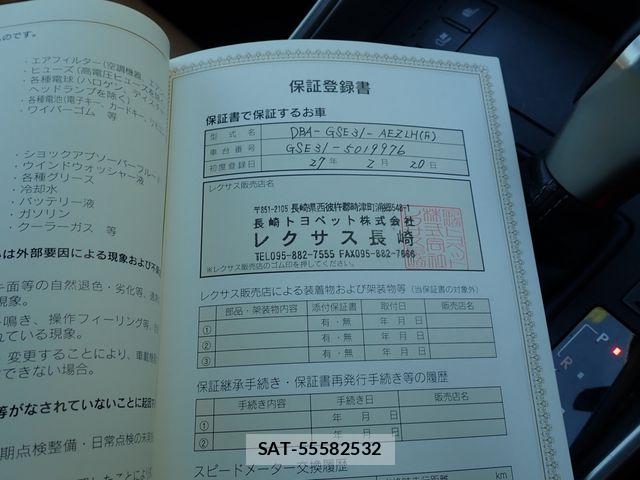 ものです。
・エアフィルター(空調機器、エア
・ヒューズ(高電圧ヒューズを
・各種電球(ハロゲン、ディス
ヘッドランプを除く)
・各種電池(電子キー、カードキー、
・ワイパーゴム 等
・ショックアブソーバーフルード
・ウインドウォッシャー液
・各種グリース
・冷却水
・バッテリー液
・ガソリン
・クーラーガス 等
は外部要因による現象および
面等の自然退色・劣化等、
現象。
鳴き、操作フィーリング等、
れている現象。
変更することにより、車載機
できない場合。
等がなされていないことに起因
期点検整備・日常点検の未
保証登録書
保証書で保証するお車
型式名 DBA-GSE31-AEZLH(F)
車台番号 GSE31-5019976
初度登録日 27年 2月 20日
レクサス販売店名
〒851-2105 長崎県西彼杵郡時津町浦郷542-1
長崎トヨペット株式会社
レクサス長崎
TEL095-882-7555 FAX095-882-7666
※レクサス販売店のゴム印を押してください。
レクサス販売店による装着物および架装物等(当保証書の対象外)
部品・架装物内容 添付保証書 取付日 販売店名
① 有・無 年 月 日
② 有・無 年 月 日
③ 有・無 年 月 日
保証継承手続き・保証書再発行手続き等の履歴
手続き内容 手続き日 販売店名
① 年 月 日
② 年 月 日
スピードメーター交換履歴
km
P
R
SAT-55582532